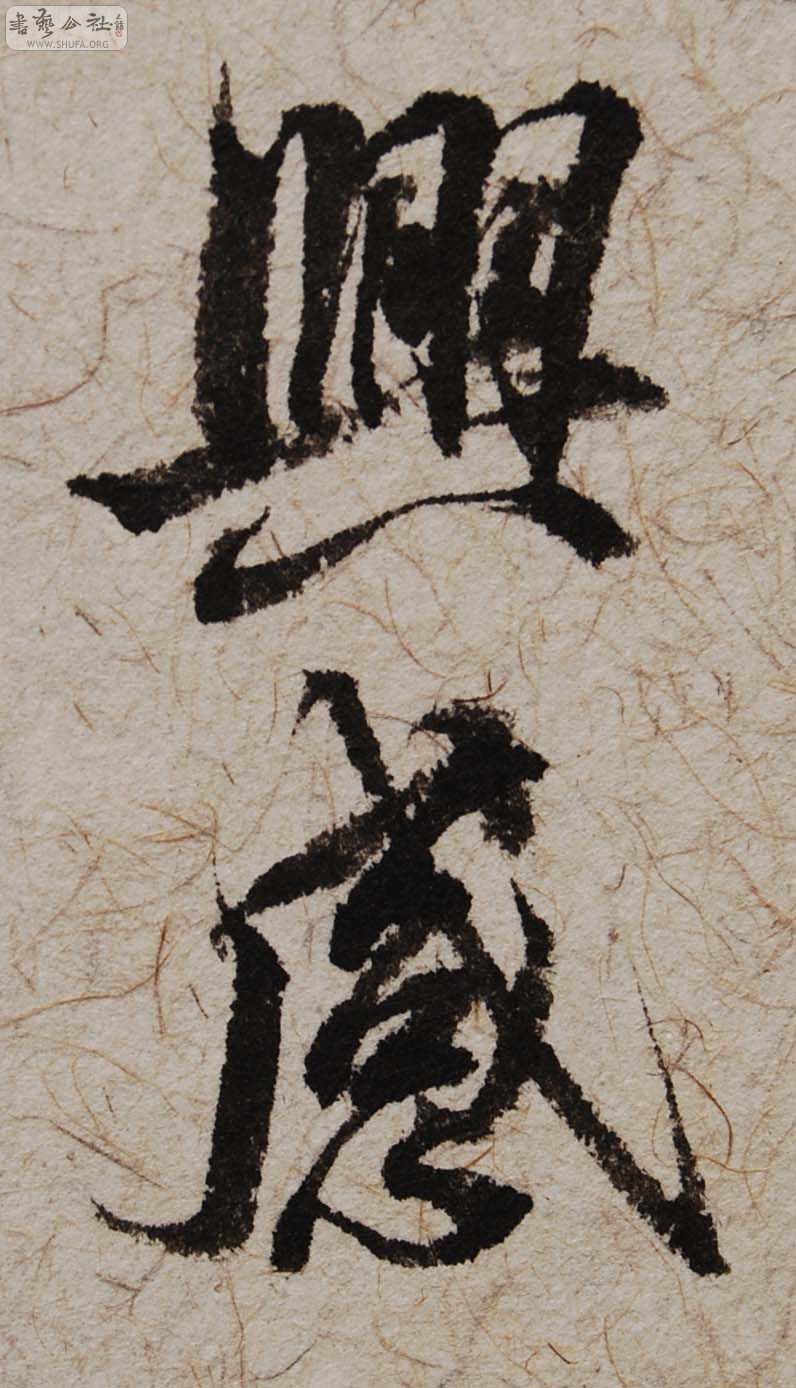 書藝公社
WWW.SHUFA.ORG
興感